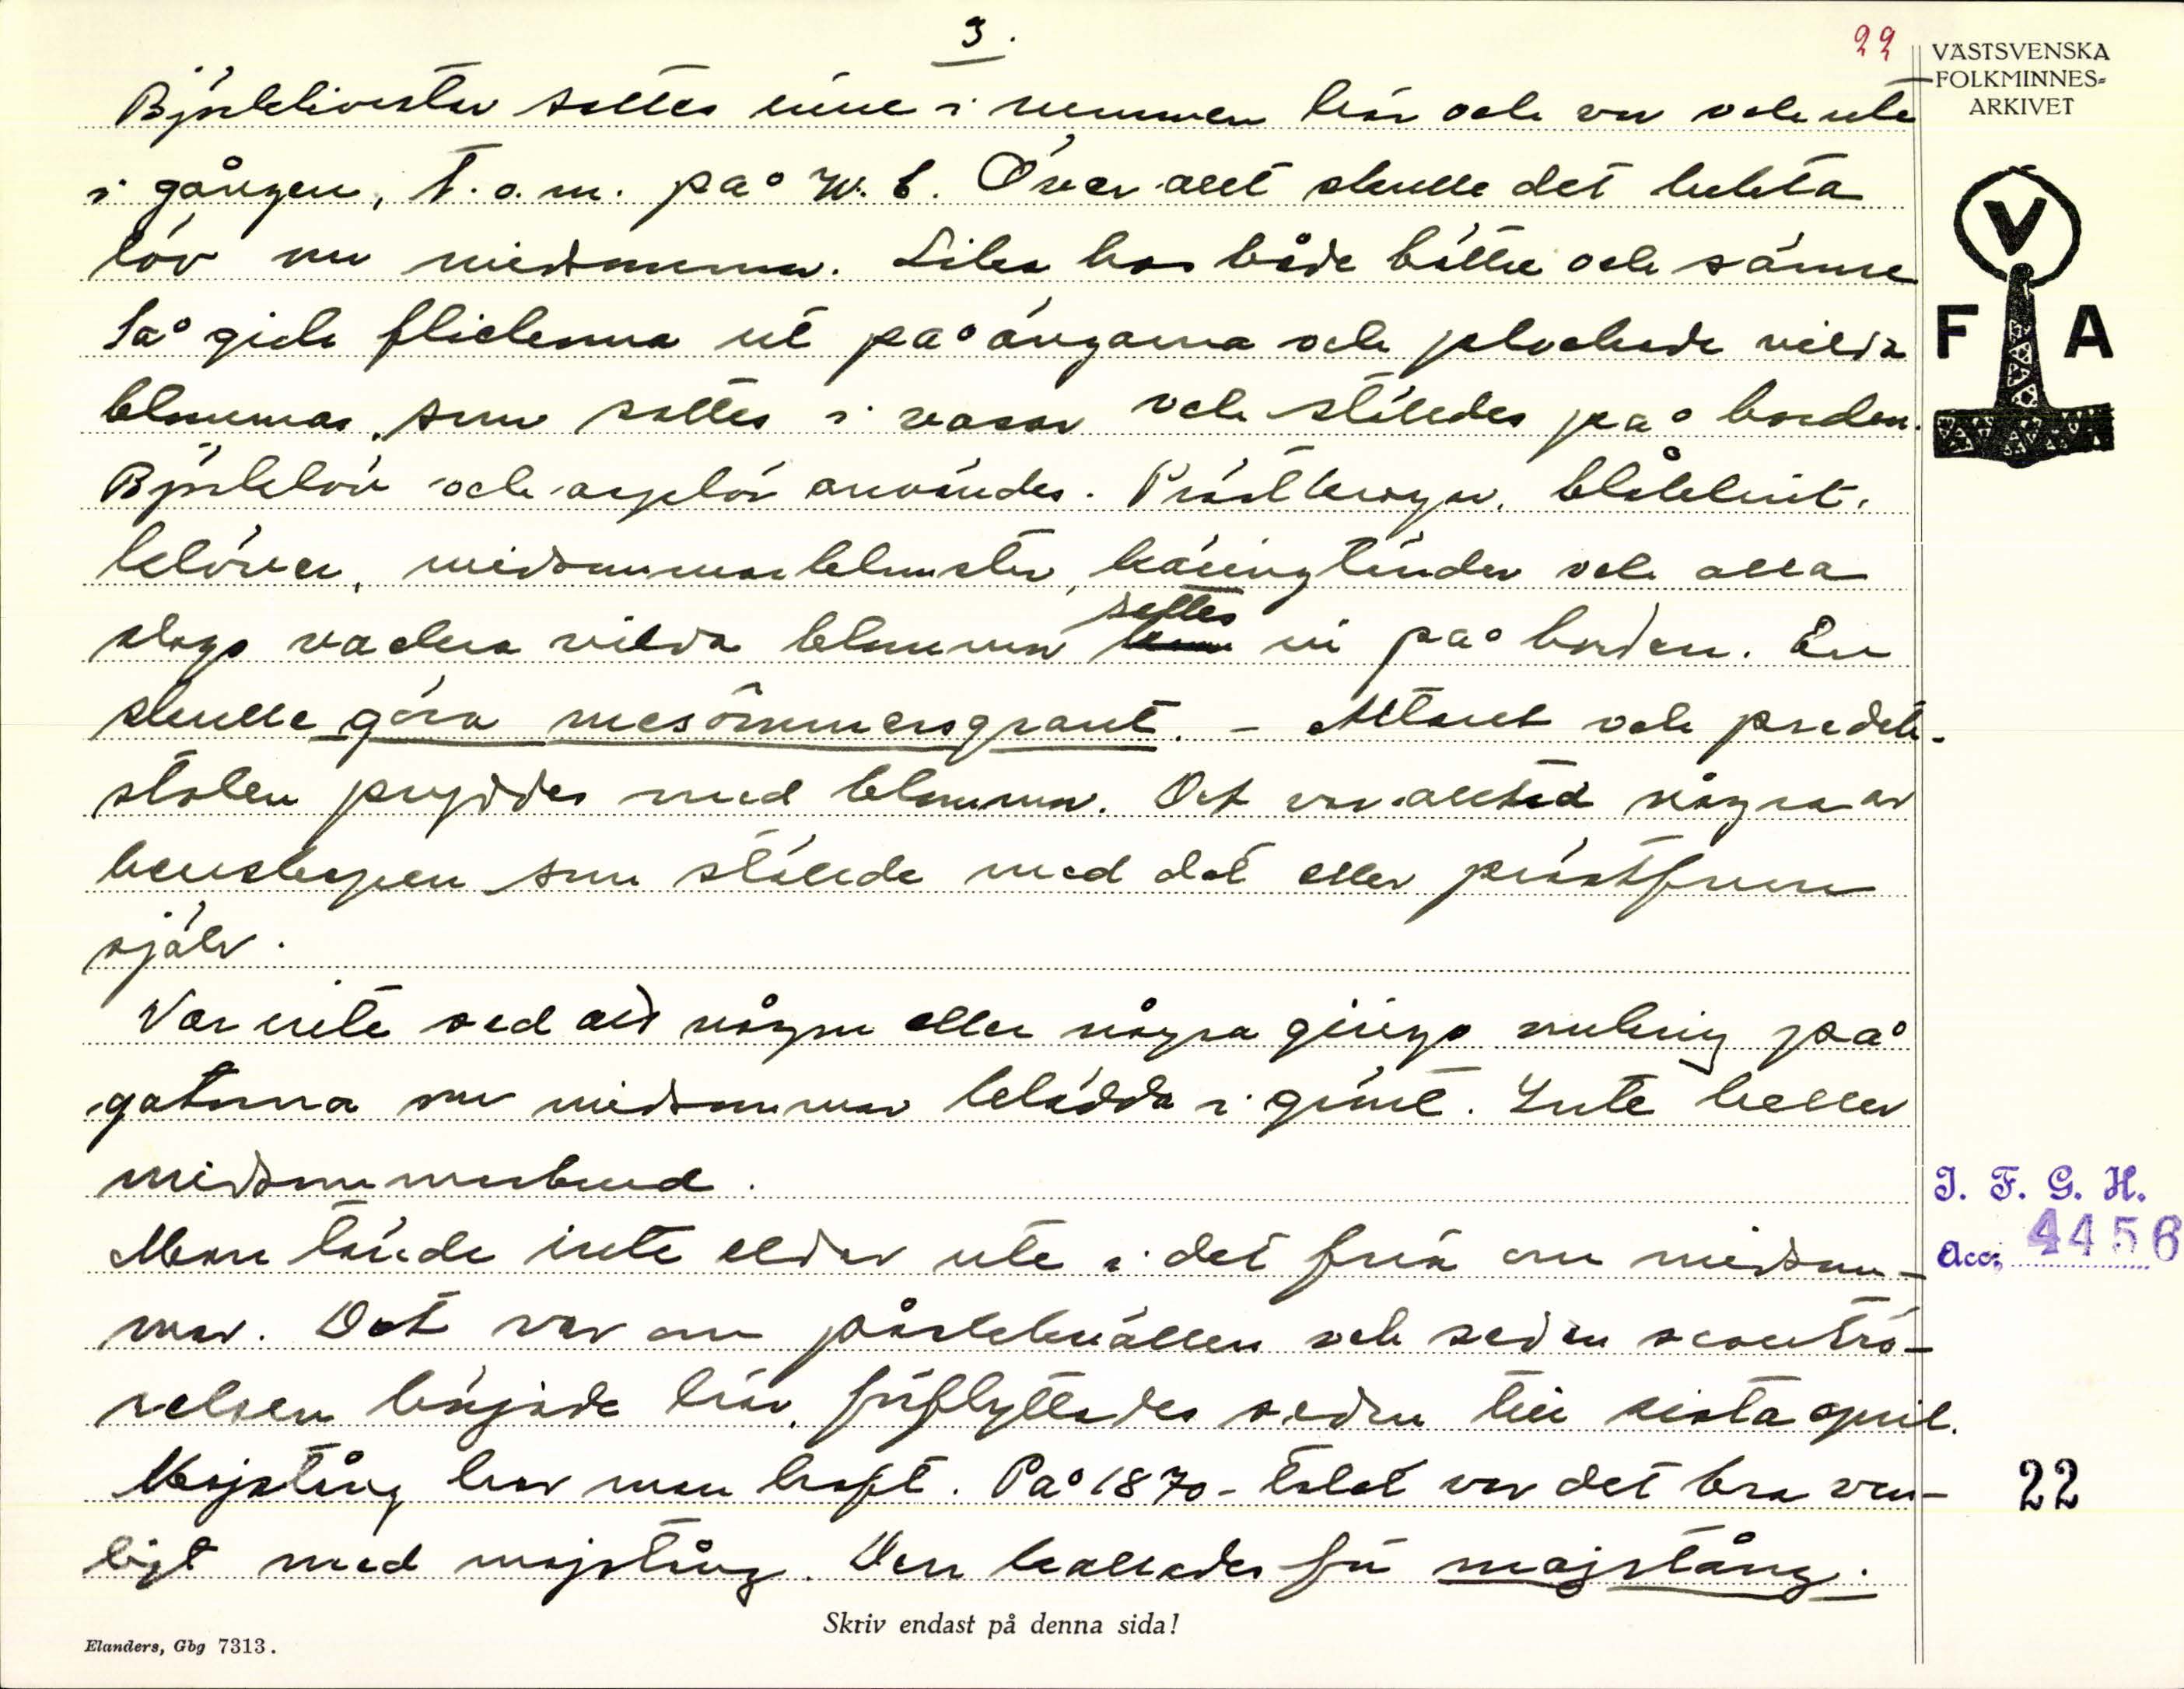 3.
22
VÄSTSVENSKA
FOLKMINNES-
ARKIVET
Björkkvistar sattes inne i rummen här och var och ute
i gången, t.o.m. på W.C. Över allt skulle det lukta
löv om midsommar. Lika hos både bättre och sämre
Så gick flickorna ut på ängarna och plockade vilda
blommor, som sattes i vasar och ställdes på borden.
Björklöv och asplöv användes. Prästkragar, blåklint,
klöver, midsommarblomster, käringtänder och alla
slags vackra vilda blommor settes in på borden. En
skulle göra mesömmersgrant. - Altaret och predik-
stolen pryddes med blommor. Det var alltid några av
herrskapen som ställde med det eller prästfrun
själv.
Var inte sed att någon eller några gingo omkring på
gatorna om midsommar klädda i grönt. Inte heller
midsommarbrud.
Man tände inte eldar ute i det fria om midsom-
mar. Det var om påskkvällen och sedan scoutrö-
relsen började här, förflyttades seden till sista april.
Majstång har man haft. På 1870-talet var det bra van-
ligt med majstång. Den kallades för majstång.
V
F A
I. F. G. H.
Acc. 4456
22
Skriv endast på denna sida!
Elanders, Gbg 7313.